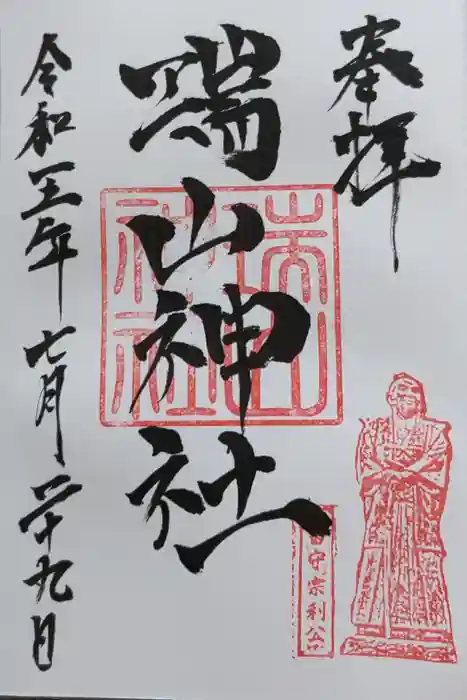 奉拝
瑞山神社
令和五年七月二十九日
瑞山
神社
留守宗利公